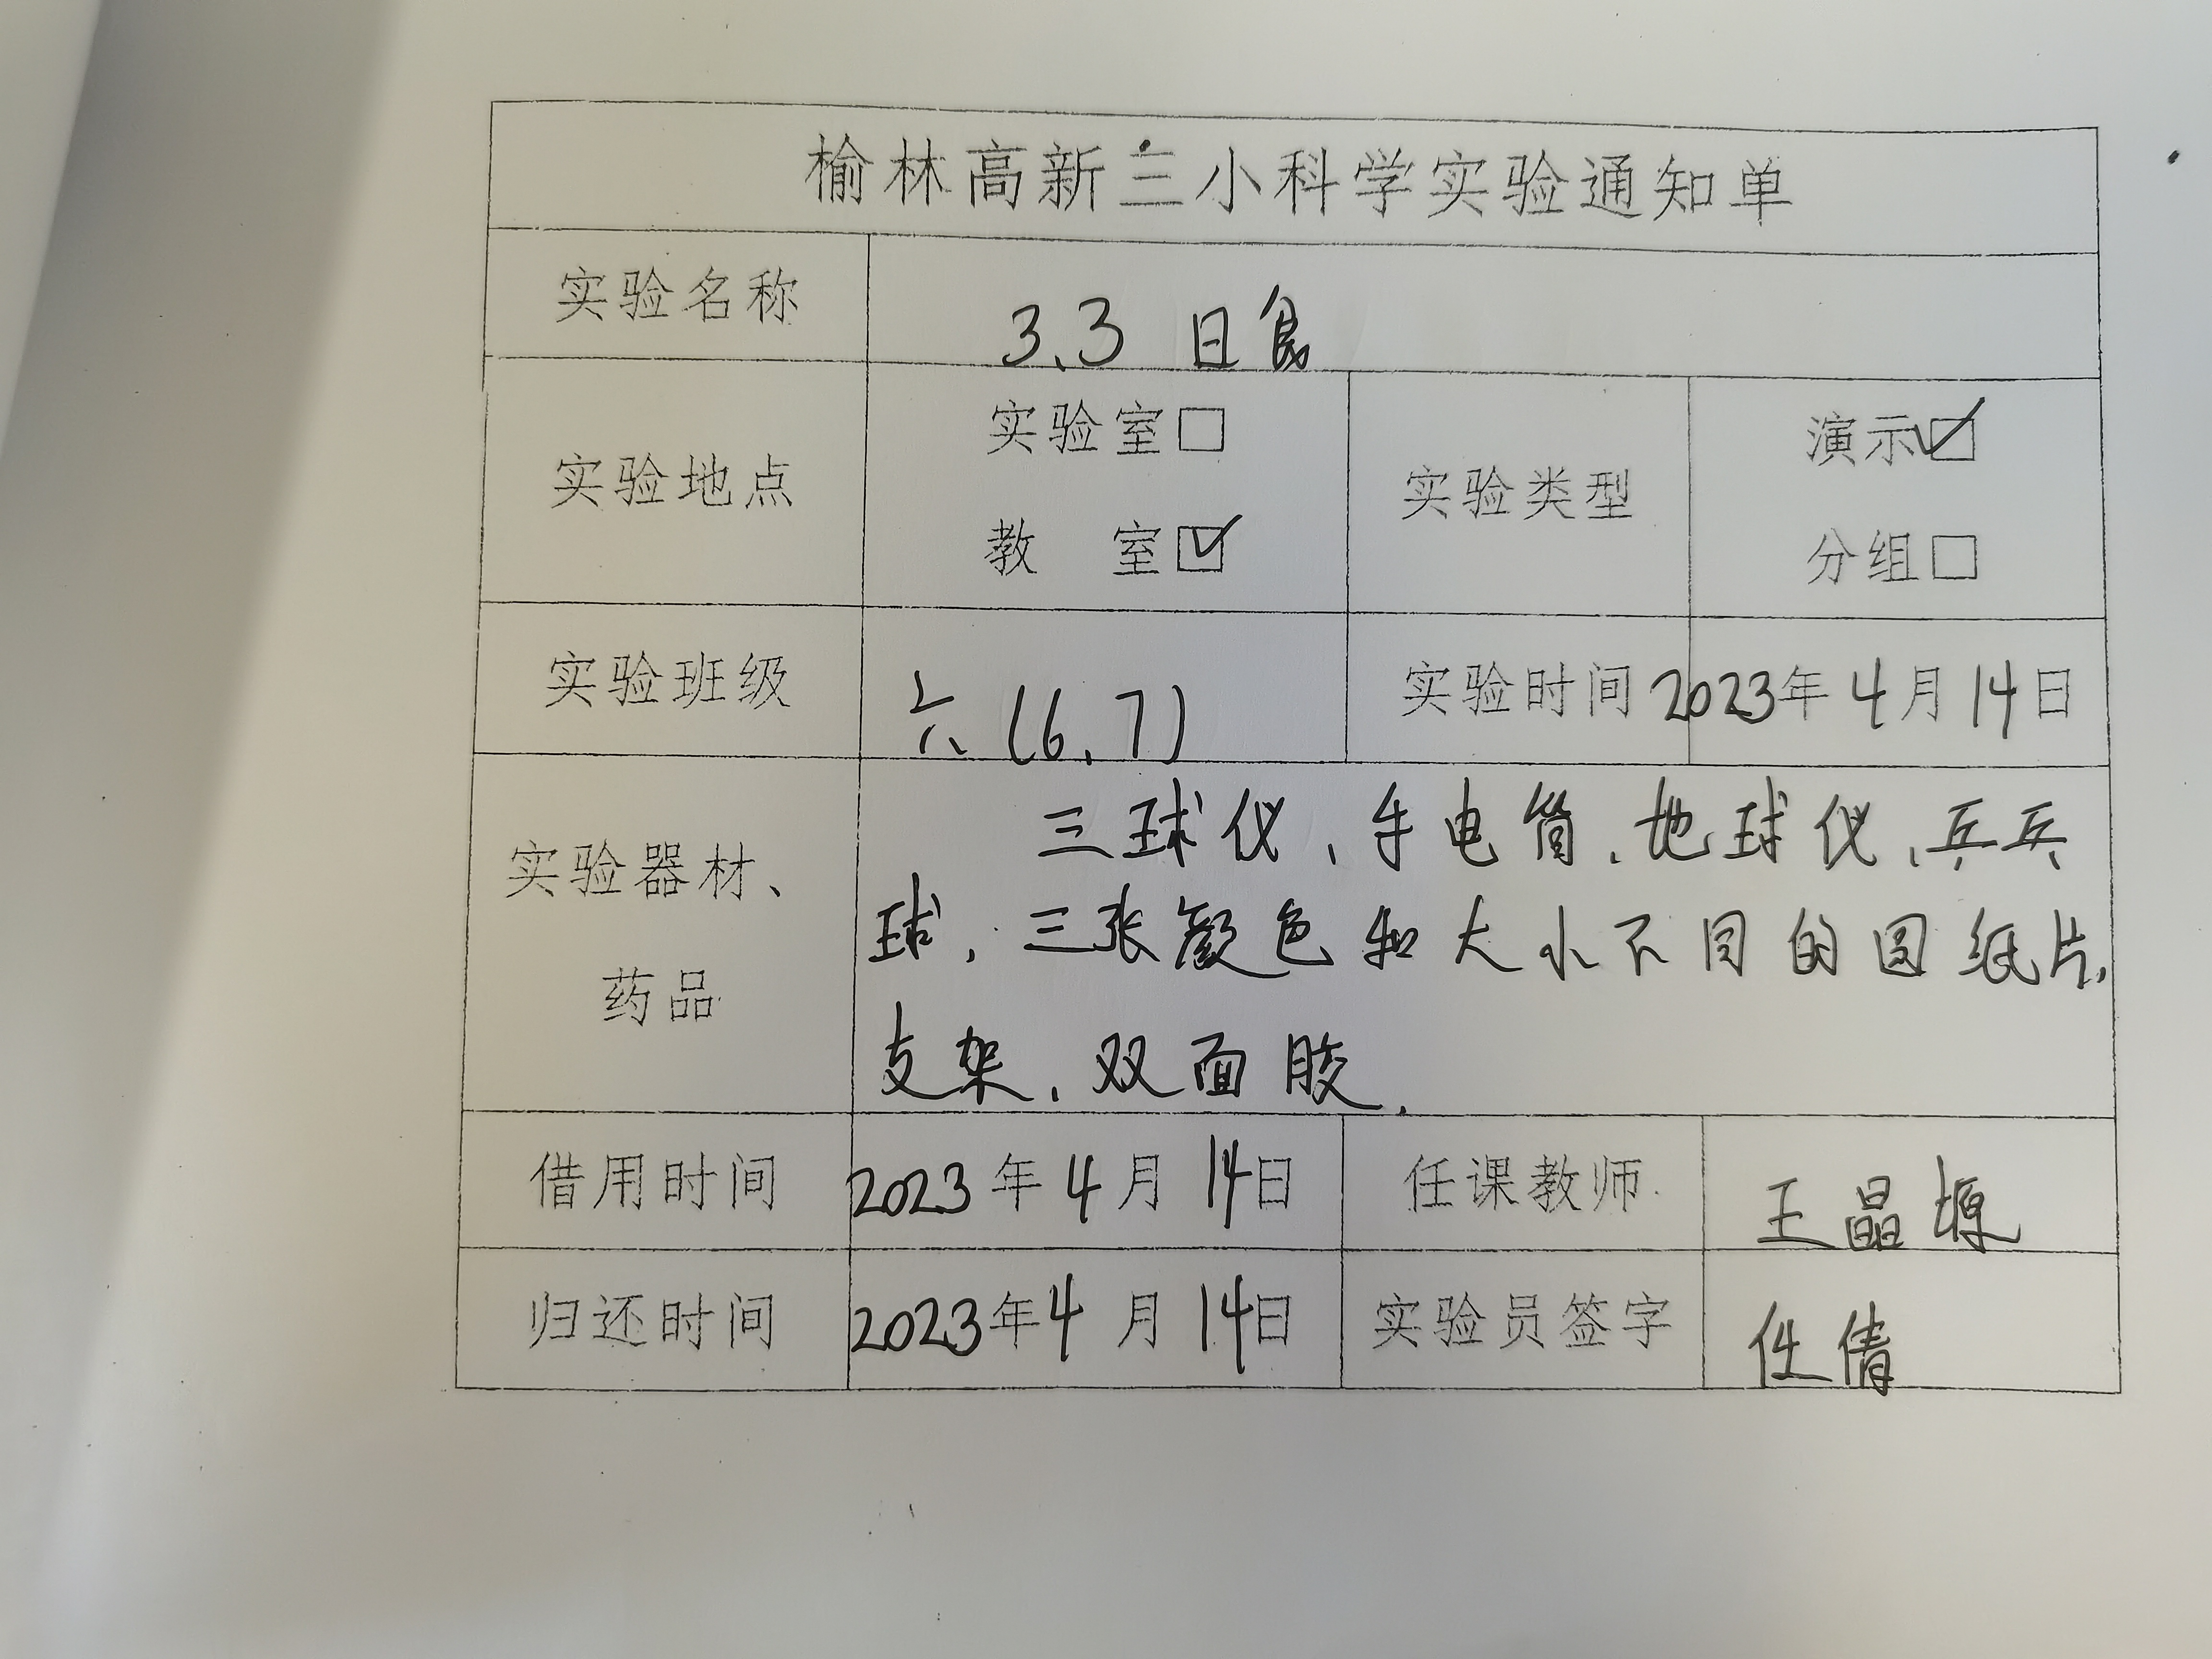 榆林高新三小科学实验通知单
实验名称 3.3 日食
实验地点 实验室□ 教 室☑ 实验类型 演示☑ 分组□
实验班级 六(6、7) 实验时间 2023年4月14日
实验器材、药品 三球仪、手电筒、地球仪、乒乓
球、三张颜色和大小不同的圆纸片、
支架、双面胶.
借用时间 2023年4月14日 任课教师 王晶塬
归还时间 2023年4月14日 实验员签字 任倩